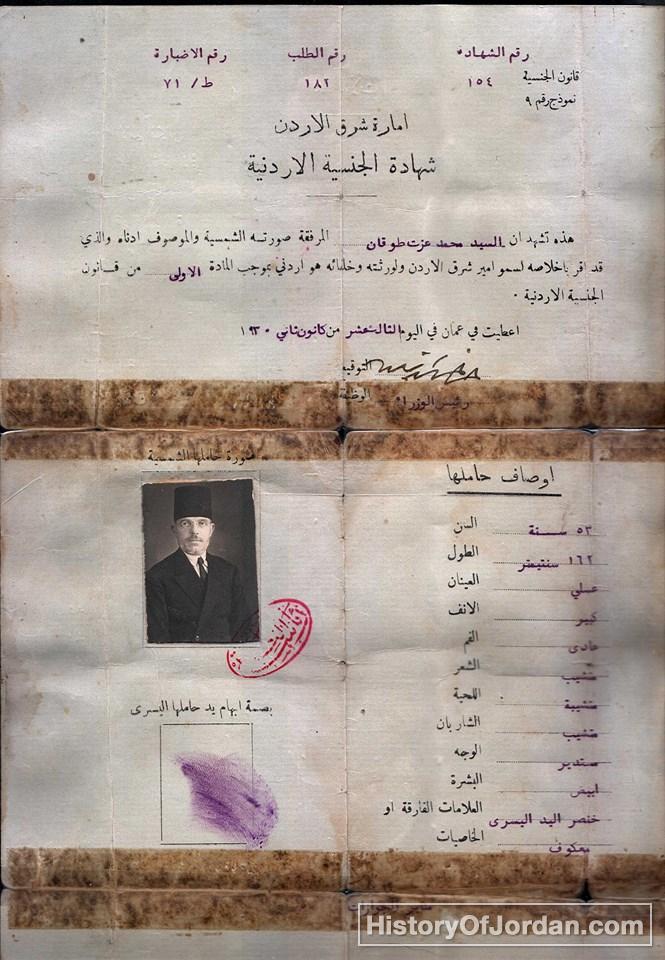 رقم الشهاده رقم الطلب رقم الاضبارة
قانون الجنسية
١٥٤ ١٨٢ ط / ٧١
نموذج رقم ٩
امارة شرق الاردن
شهادة الجنسية الاردنية
هذه تشهد ان السيد محمد عزت طوقان المرفقة صورته الشمسية والموصوف ادناه والذي
قد اقر باخلاصه لسمو امير شرق الاردن ولورثته وخلفائه هو اردني بموجب المادة الاولى من قانون
الجنسية الاردنية .
اعطيت في عمان في اليوم الثالث عشر من كانون ثاني ١٩٣٠
التوقيع
الوظيفة رئيس الوزراء
صورة حاملها الشمسية
اوصاف حاملها
السن ٥٣ سنة
الطول ١٦٢ سنتيمتر
العينان عسلي
الانف كبير
الفم عادي
الشعر
اللحية
الشاربان
الوجه مستدير
البشرة ابيض
العلامات الفارقة او خنصر اليد اليسرى
الخاصيات معكوف
بصمة ابهام يد حاملها اليسرى
HistoryOfJordan.com